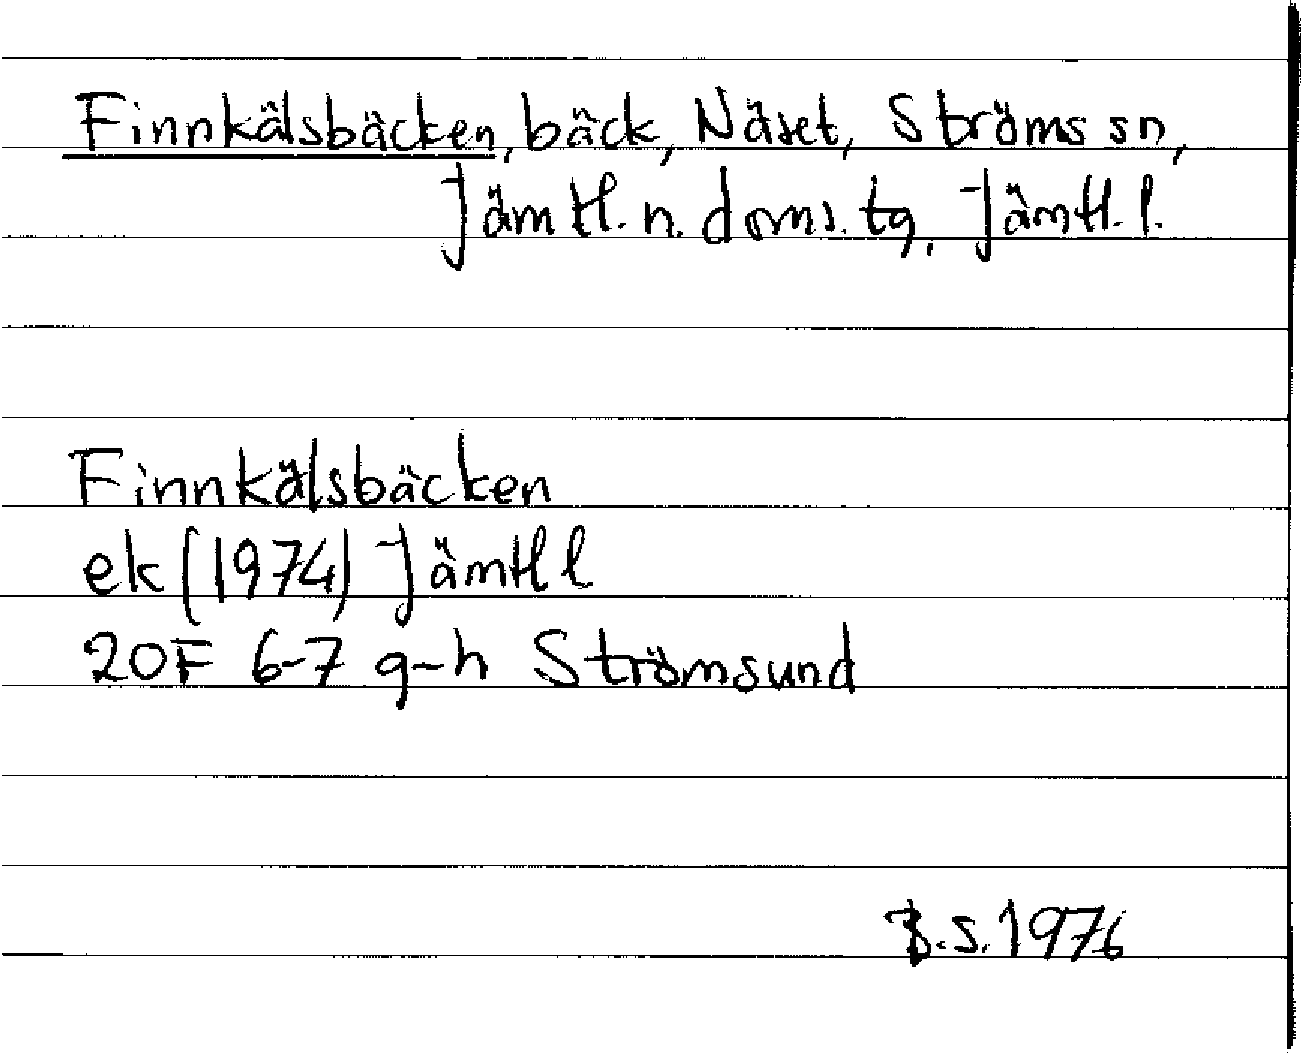 Finnkälsbäcken, bäck, Näset, Ströms sn,
Jämtl. n. doms. tg, Jämtl. l.
Finnkälsbäcken
ek (1974) Jämtl l
20F 6-7 g-h Strömsund
B.S. 1976